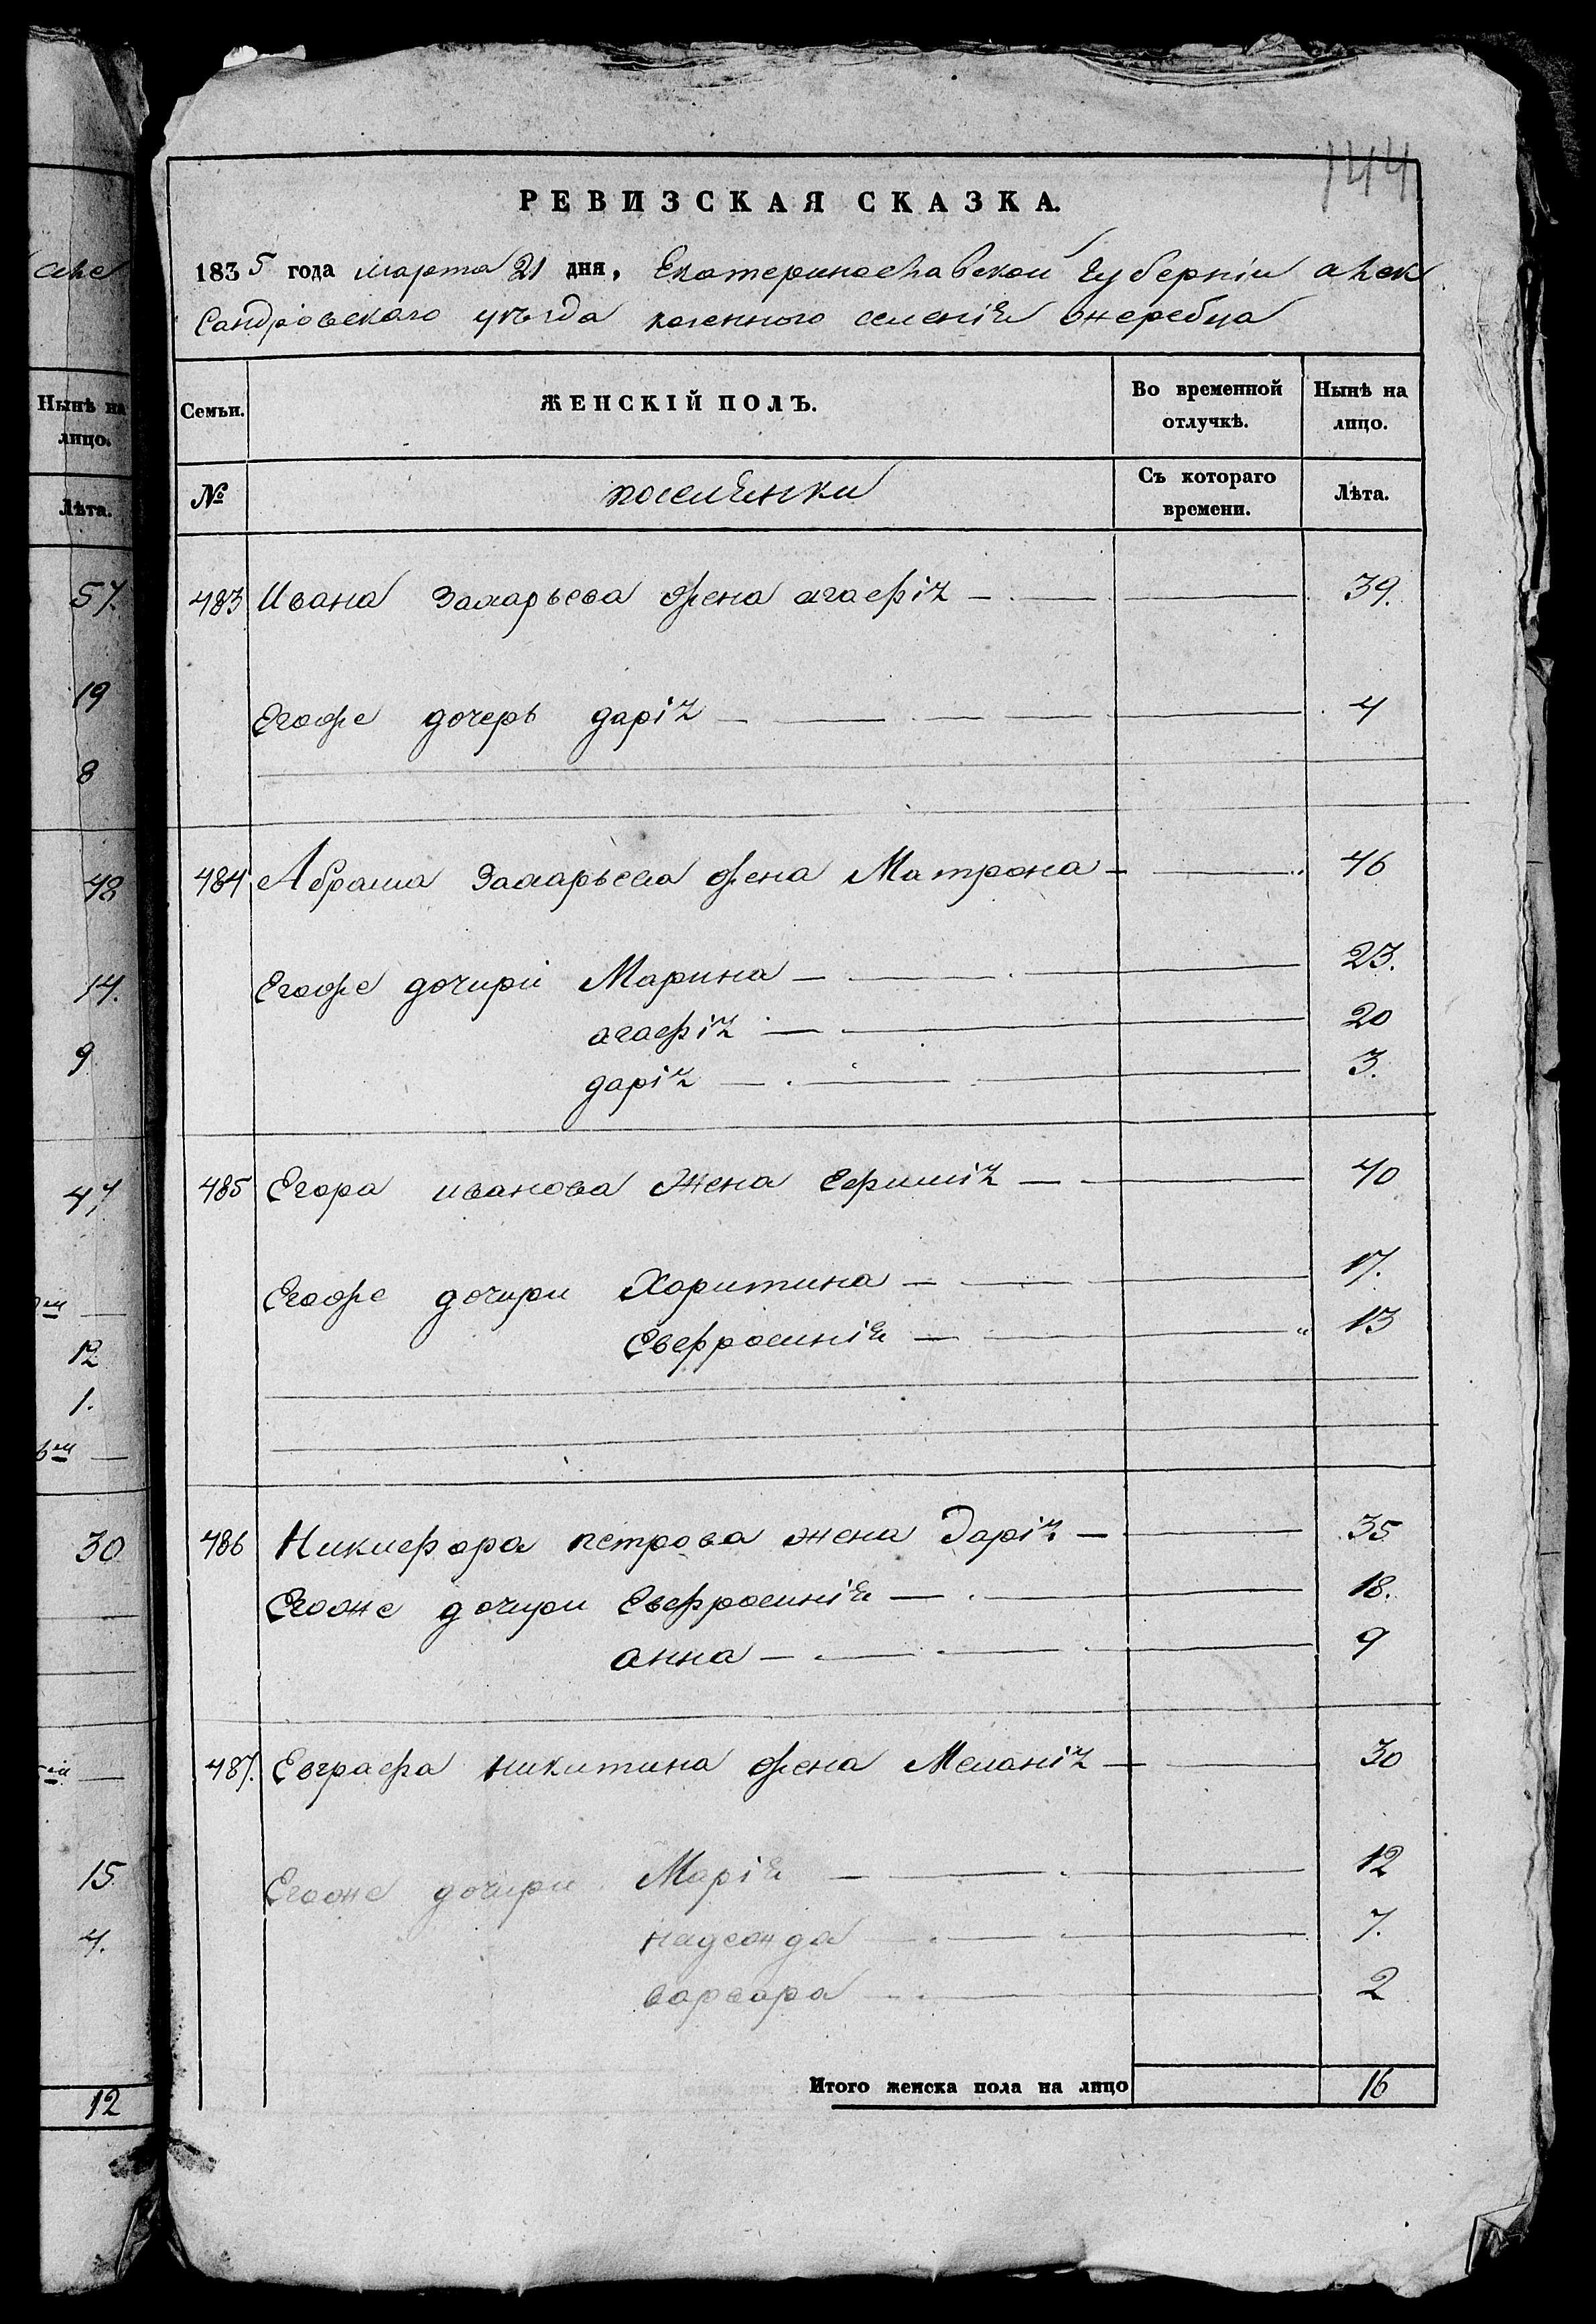 144
РЕВИЗСКАЯ СКАЗКА.
1835 года марта 21 дня, Екатеринославской губерніи алек
сандровского уѣзда казенного селенія жеребца
Семьи. ЖЕНСКІЙ ПОЛЪ. Во временной отлучкѣ. Нынѣ на лицо.
№ поселянки Съ котораго времени. Лѣта.
483 Ивана Захарьева жена агафія 39.
Егоже дочерь дарія 4
484 Абрама Захарьева жена Матрона 46
Егоже дочири Марина 23.
агафія 20
дарія 3.
485 Егора иванова жена 40
Егоже дочири Харитина 17.
Евфросинія 13
486 Никифора петрова жена Дарія 35
Егоже дочири Евфросинія 18.
анна 9
487. Евграфа никитина жена Меланія 30
Егоже дочири Марія 12
надежда 7.
варвара 2
Итого женска пола на лицо 16
Нынѣ на
лицо.
Лѣта.
57.
19
8
48
14.
9
47
12
1.
30
15
4.
12